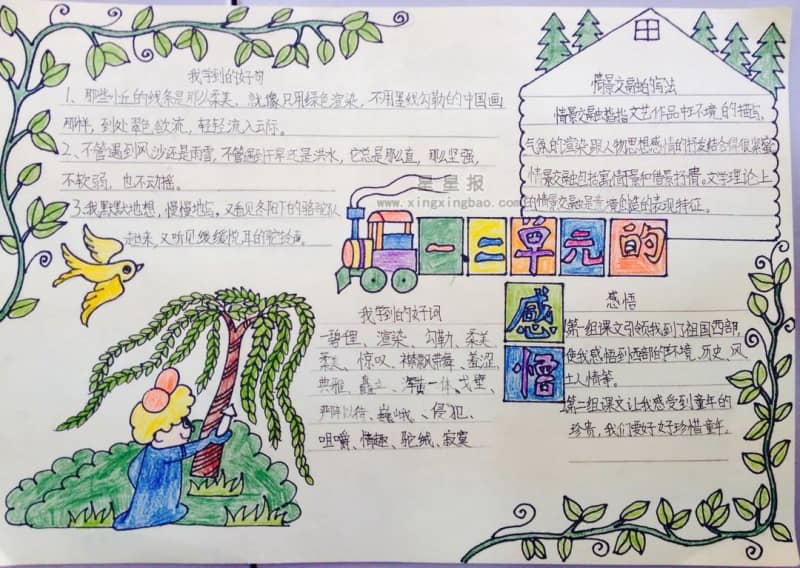 我学到的好句
1、那些小丘的线条是那么柔美,就像只用绿色渲染,不用墨线勾勒的中国画
那样,到处翠色欲流,轻轻流入云际。
2、不管遇到风沙还是雨雪,不管遇到干旱还是洪水,它总是那么直,那么坚强,
不软弱,也不动摇。
3.我默默地想,慢慢地写。又看见冬阳下的骆驼队
走过来,又听见缓缓悦耳的驼铃声。
星星报
www.xingxingbao.com
情景交融的写法
情景交融指指文艺作品中环境的描写、
气氛的渲染跟人物思想感情的抒发结合得很紧密
情景交融包括寓情于景和借景抒情。文学理论上
的情景交融是意境创造的表现特征。
一二单元的
感
悟
我学到的好词
碧绿、渲染、勾勒、柔美
柔美、惊叹、襟飘带舞、羞涩、
典雅、矗立、浑黄一体、戈壁、
严阵以待、巍峨、侵犯、
咀嚼、情趣、驼绒、寂寞
感悟
第一组课文引领我到了祖国西部,
使我感悟到西部的环境、历史、风
土人情等。
第二组课文让我感受到童年的
珍贵,我们要好好珍惜童年。